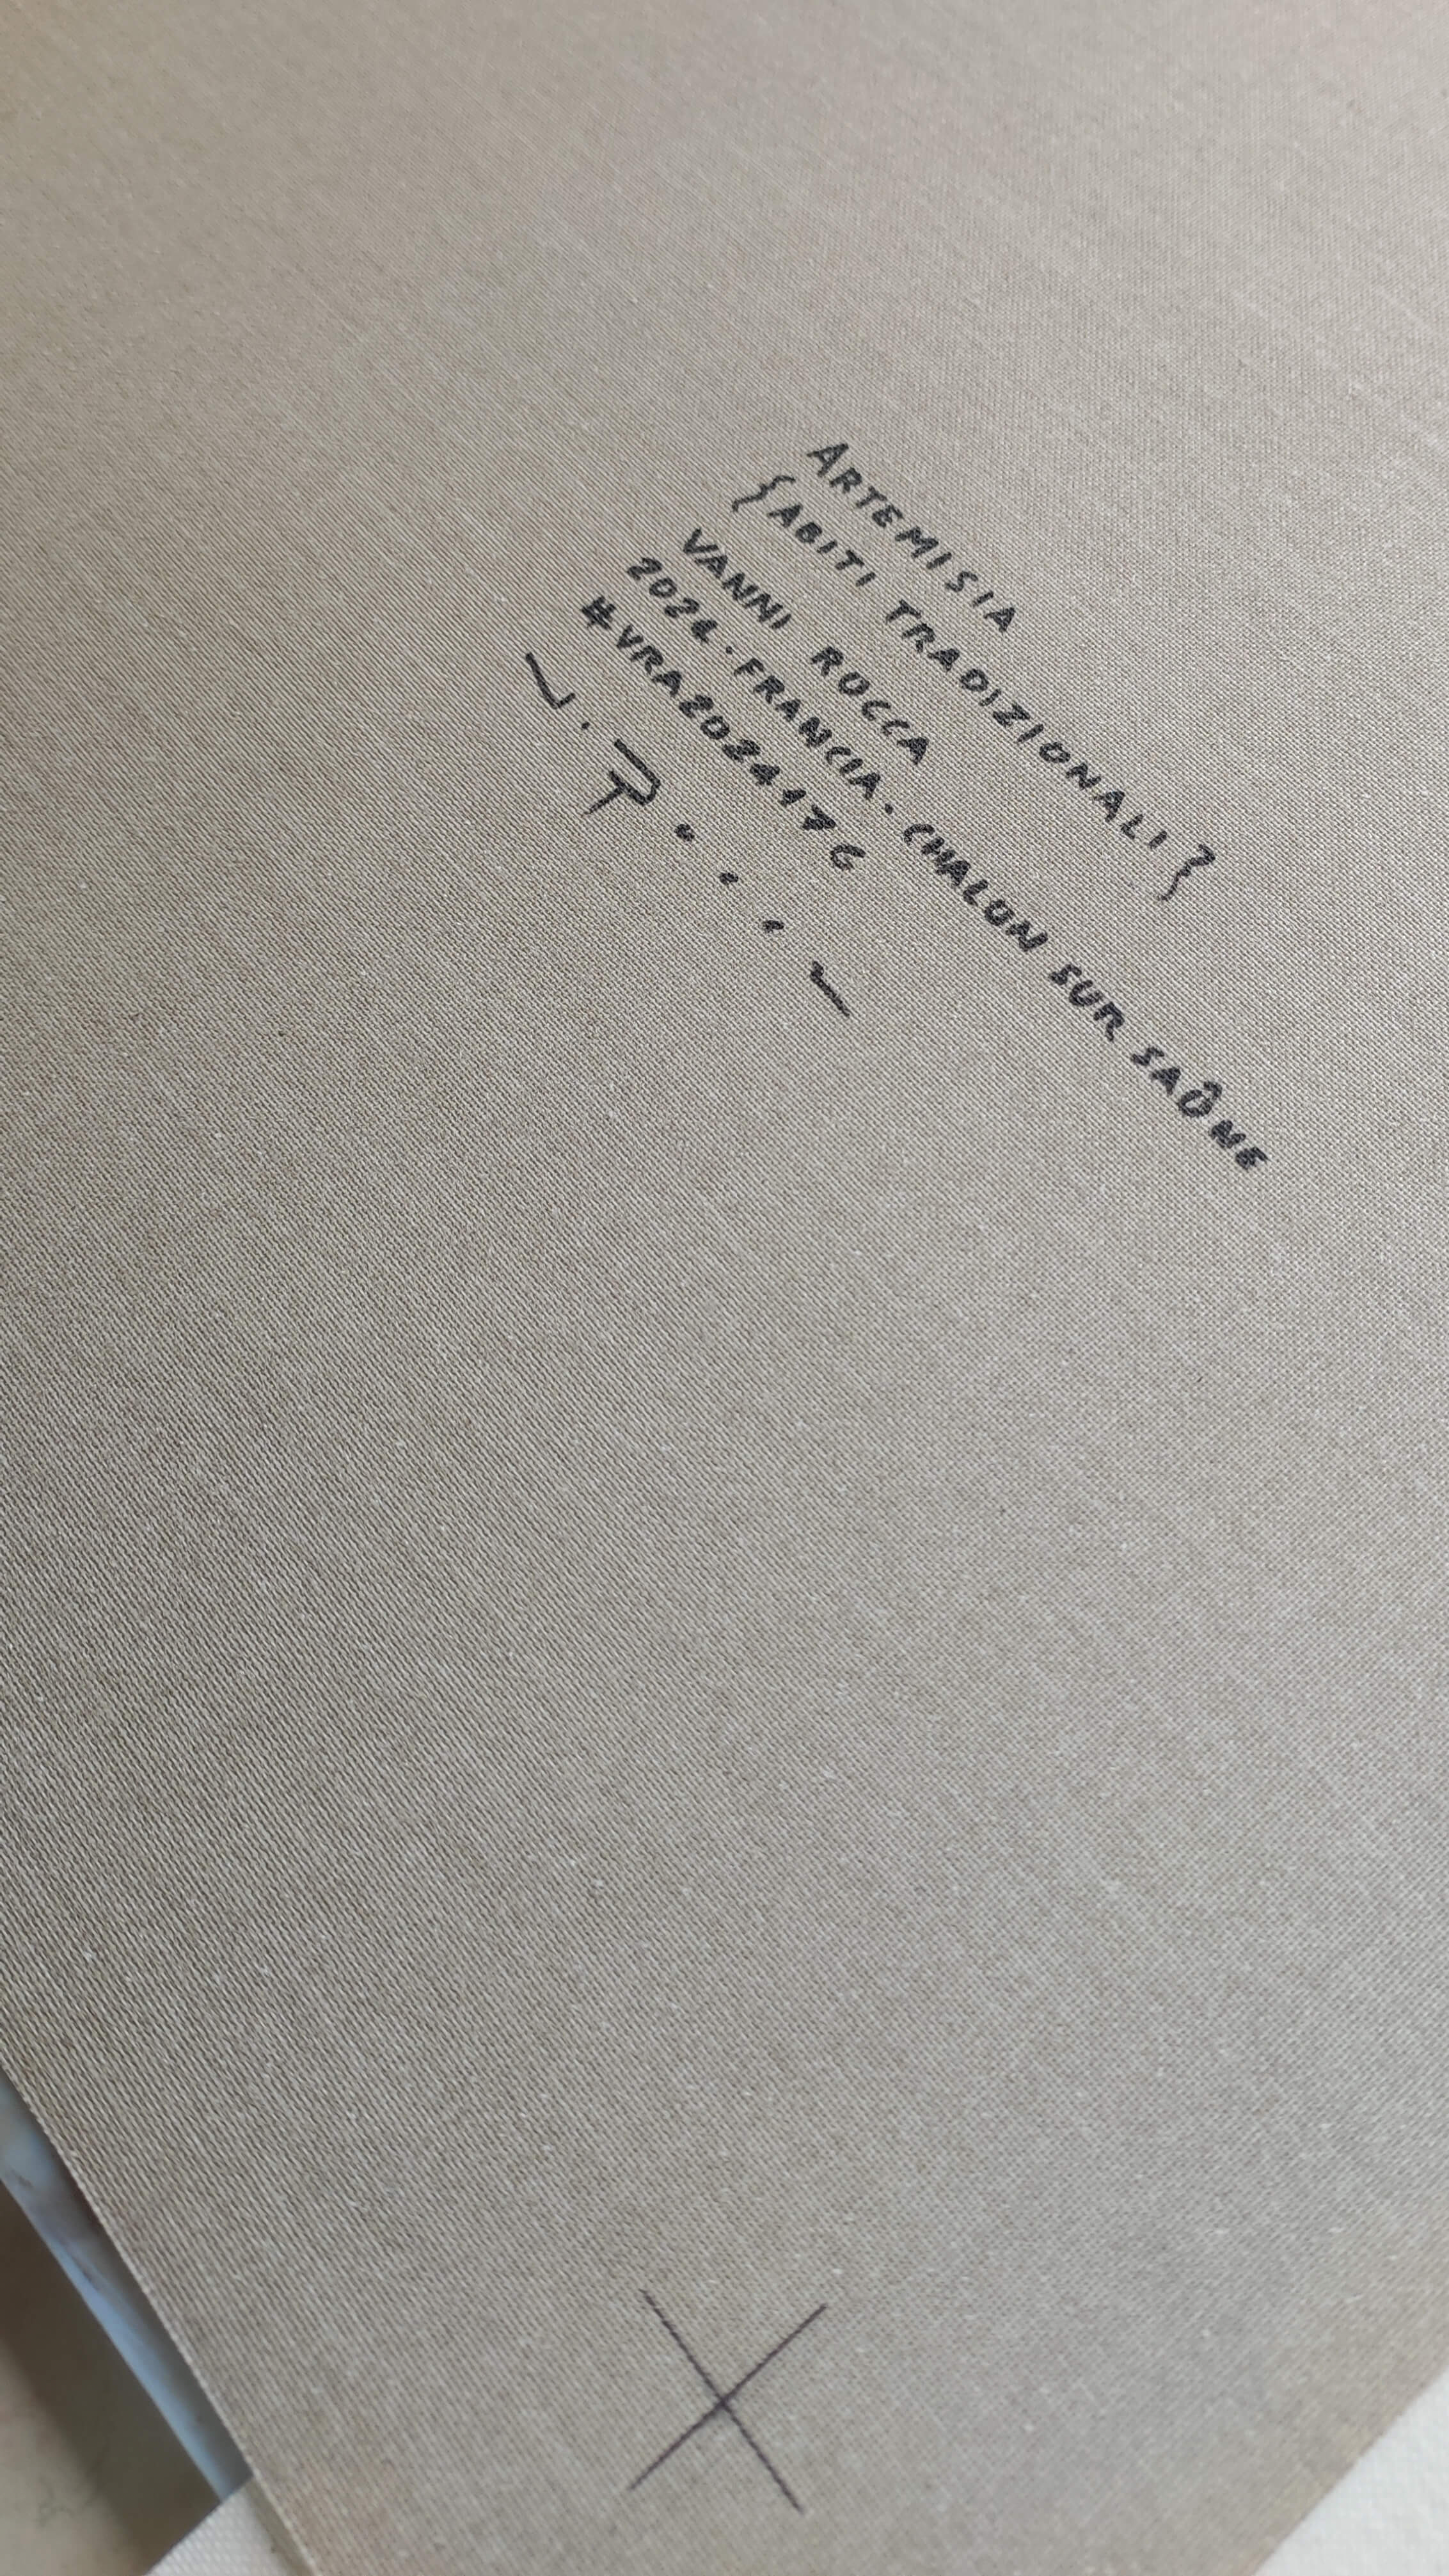 ARTEMISIA
{ABITI TRADIZIONALI}
VANNI ROCCA
2024 · FRANCIA · CHALON SUR SAÔNE
#VRA2024176